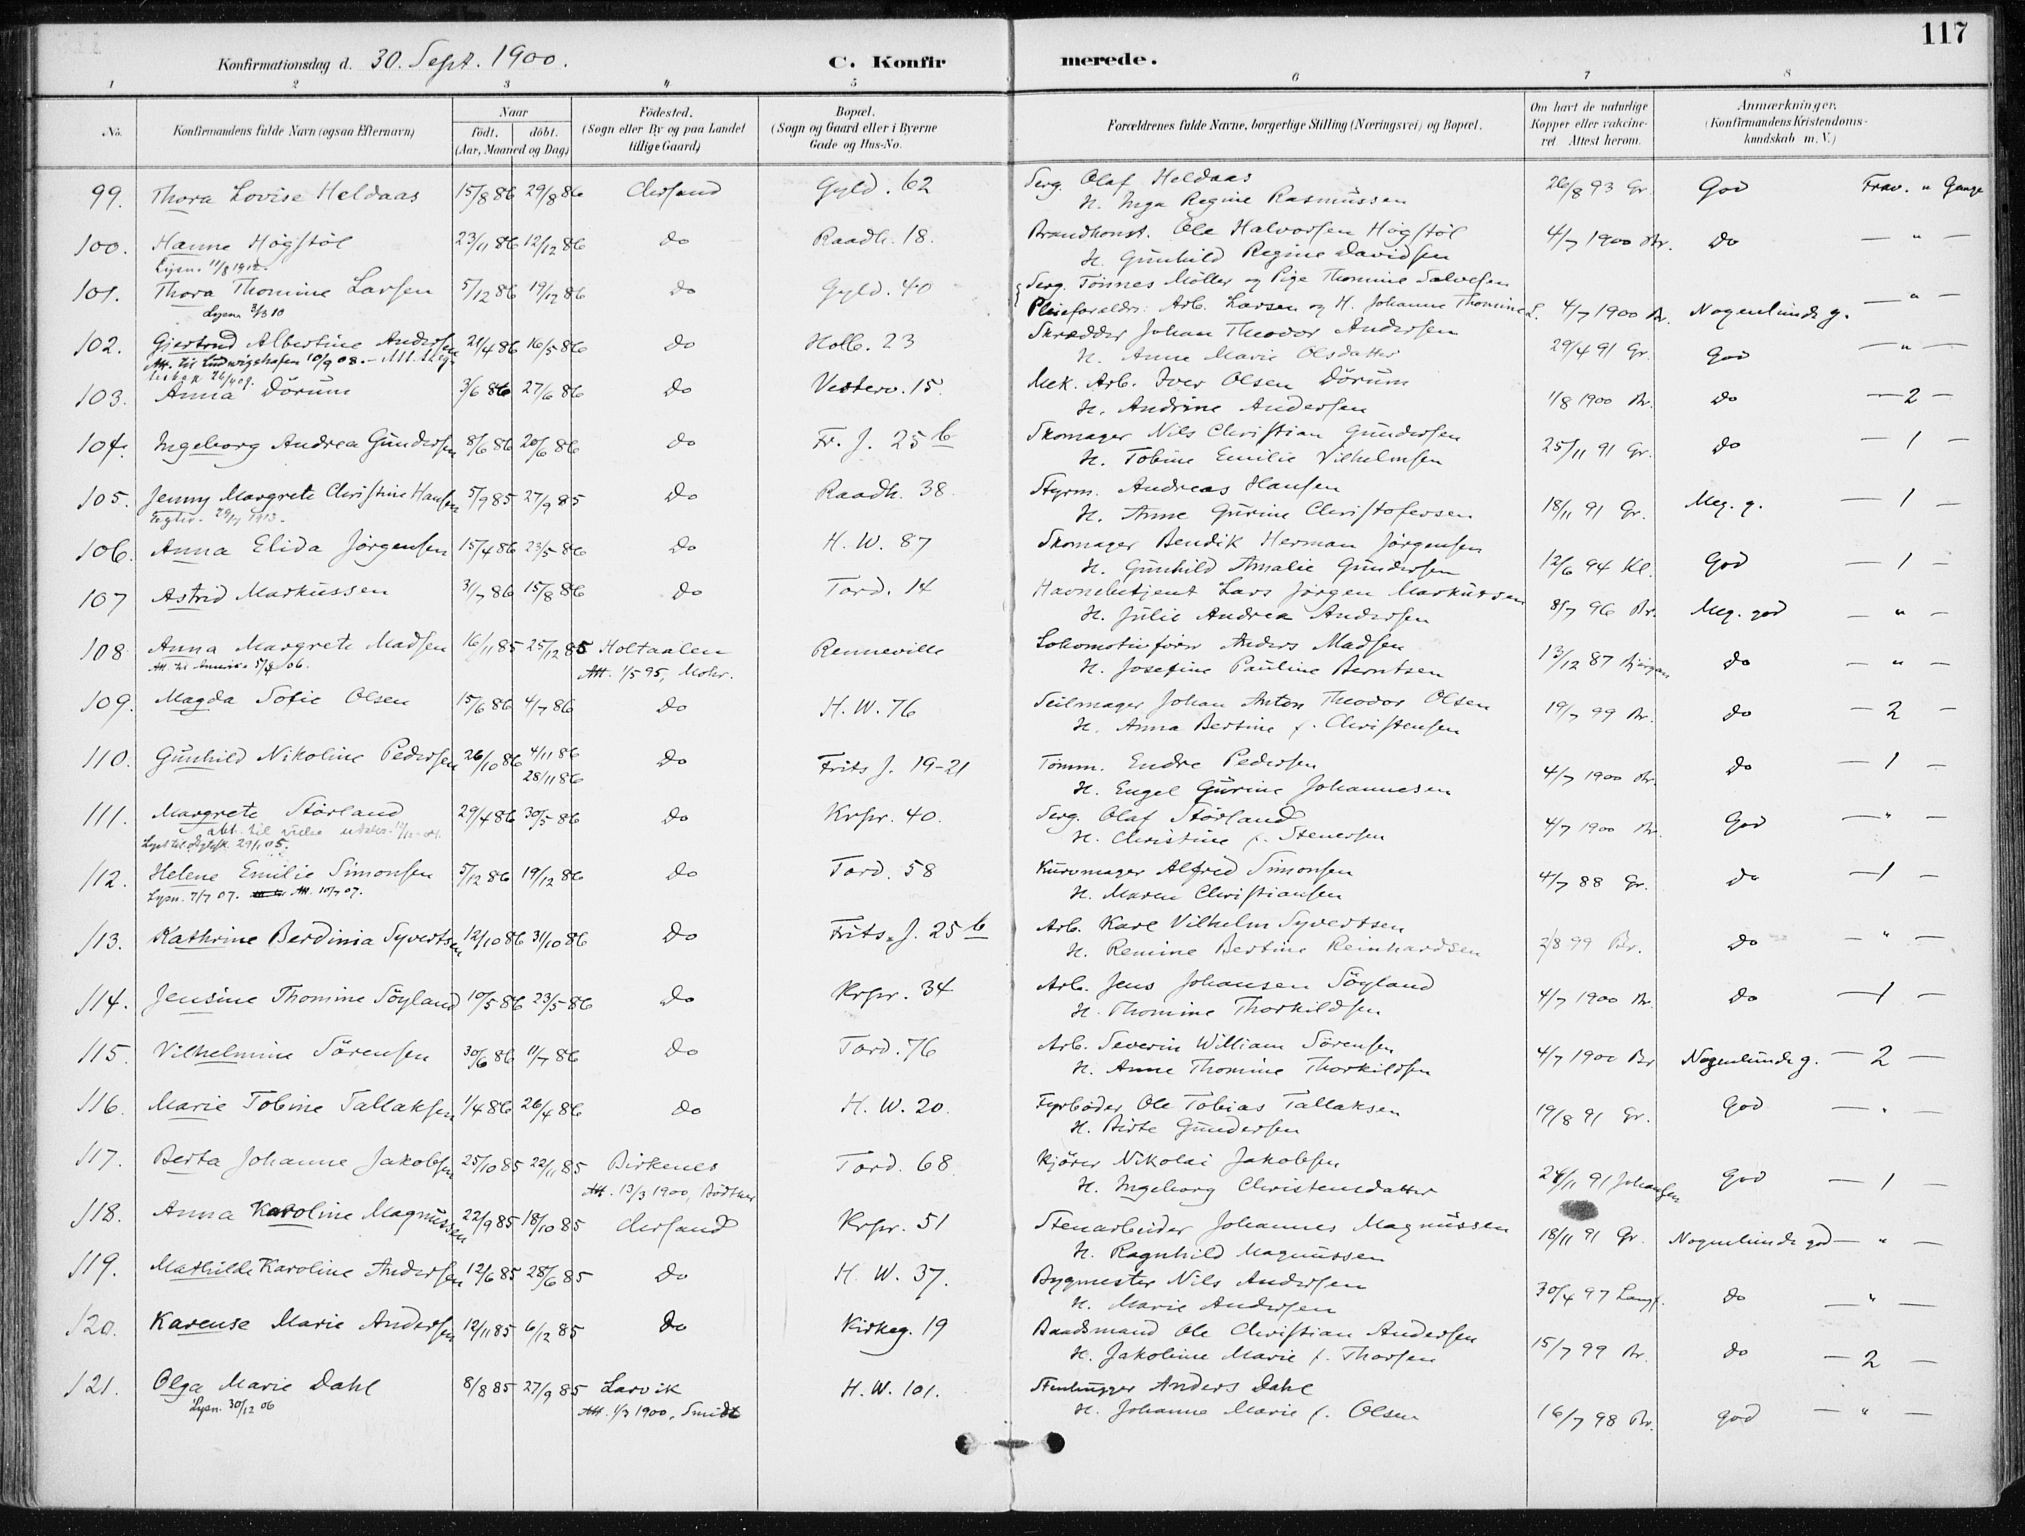 117
Konfirmationsdag d. 30. Sept. 1900. C. Konfirmerede.
1 2 3 4 5 6 7 8
No. Konfirmandens fulde Navn (ogsaa Efternavn) Naar födt. döbt. (Aar, Maaned og Dag) Födested. (Sogn eller By og paa Landet tillige Gaard) Bopæl. (Sogn og Gaard eller i Byerne Gade og Hus-No. Forældrenes fulde Navne, borgerlige Stilling (Næringsvei) og Bopæl. Om havt de naturlige Kopper eller vakcineret Attest herom. Anmærkninger. (Konfirmandens Kristendomskundskab m. V.)
99. Thora Lovise Heldaas 15/8 86 29/8 86 Chrsand Gyld. 62 Serg. Olaf Heldaas 26/8 93 Gr. God Frav. " Gange
H. Inga Regine Rasmussen
100. Hanne Högstöl 23/11 86 12/12 86 do Raadh. 18. Brandkonst. Ole Halvorsen Högstöl 4/7 1900 Br. do — " —
Lysn. 11/8 1912. H. Gunhild Regine Davidsen
101. Thora Thomine Larsen 5/12 86 19/12 86 do Gyld. 40 Serg. Tönnes Möller og Pige Thomine Salvesen
Lysn. 3/3 10 Pleieforældre: Arb. Larsen og H. Johanne Thomine L. 4/7 1900 Br. Nogenlunde g. — " —
102. Gjertrud Albertine Andersen 21/4 86 16/5 86 do Holb. 23 Skrædder Johan Theodor Andersen 29/4 91 Gr. God — " —
Att. til Ludwigshafen 10/9 08. H. Anne Marie Olsdatter
103. Anna Dörum 3/6 86 27/6 86 do Vesterv. 15. Mek. Arb. Iver Olsen Dörum 1/8 1900 Br. do — 2 —
H. Andrine Andersen
104. Ingeborg Andrea Gundersen 8/6 86 20/6 86 do Fr. J. 25 b Skomager Nils Christian Gundersen 25/11 91 Gr. do — 1 —
H. Tobine Emilie Vilhelmsen
105. Jenny Margrete Christine Hansen 5/9 85 27/9 85 do Raadh. 38. Styrm. Andreas Hansen 18/11 91 Gr. Meg. g. — 1 —
H. Anne Gurine Christofersen
106. Anna Elida Jörgensen 15/4 86 23/5 86 do H. W. 87 Skomager Bendik Herman Jörgensen 12/6 94 Kl. God — 1 —
H. Gunhild Amalie Gundersen
107 Astrid Markussen 31/7 86 15/8 86 do Tord. 14 Havnebetjent Lars Jörgen Markussen 8/7 96 Br. Meg. god — " —
H. Julie Andrea Andersen
108 Anna Margrete Madsen 16/11 85 25/12 85 Holtaalen Renneville Lokomotivförer Anders Madsen 13/12 87 do — " —
Att. 1/5 95, Mohr. H. Josefine Pauline Berntsen
109. Magda Sofie Olsen 15/6 86 4/7 86 do H. W. 76 Seilmager Johan Anton Theodor Olsen 19/7 99 Br. do — 2 —
H. Anna Bertine f. Christensen
110. Gunhild Nikoline Pedersen 26/10 86 4/11 86 do Frits J. 19-21 Tömm. Endre Pedersen 4/7 1900 Br. do — 1 —
28/11 86 H. Engel Gurine Johannesen
111. Margrete Störland 29/4 86 30/5 86 do Krpr. 40. Serg. Olaf Störland 4/7 1900 Br. God — " —
H. Christine f. Stenersen
112. Helene Emilie Simonsen 5/12 86 19/12 86 do Tord. 58 Kurvmager Alfred Simonsen 4/7 88 Gr. do — 1 —
Lysn. 7/7 07. Att. 10/7 07. H. Maren Christiansen
113. Kathrine Berdinia Syvertsen 12/10 86 31/10 86 do Frits J. 25 b Arb. Karl Vilhelm Syvertsen 2/8 99 Br. do — " —
H. Remine Bertine Reinhardsen
114. Jensine Thomine Söyland 10/5 86 23/5 86 do Krpr. 34 Arb. Jens Johansen Söyland 4/7 1900 Br. do — 1 —
H. Thomine Thorkildsen
115. Vilhelmine Sörensen 30/6 86 11/7 86 do Tord. 76 Arb. Severin William Sörensen 4/7 1900 Br Nogenlunde g. — 2 —
H. Anne Thomine Thorkildsen
116. Marie Tobine Tallaksen 1/4 86 26/4 86 do H. W. 20. Fyrböder Ole Tobias Tallaksen 19/8 91 Gr. God — " —
H. Berte Gundersen
117. Berta Johanne Jakobsen 25/10 85 22/11 85 Birkenes Tord. 68 Kjörer Nikolai Jakobsen 24/11 91 Johansen God — 1 —
Att. 13/3 1900, Bödtker H. Ingeborg Christensdatter
118. Anna Karoline Magnussen 22/9 85 18/10 85 Chrsand Krpr. 51 Stenarbeider Johannes Magnussen 18/11 91 Gr. Nogenlunde god — " —
H. Ragnhild Magnussen
119. Mathilde Karoline Andersen 12/6 85 28/6 85 do H. W. 37. Bygmester Nils Andersen 30/4 97 Langf. do — " —
H. Marie Andersen
120. Karense Marie Andersen 12/11 85 6/12 85 do Kirkeg. 19 Baadsmand Ole Christian Andersen 15/7 99 Br. do — 2 —
H. Jakobine Marie f. Thorsen
121. Olga Marie Dahl 8/8 85 27/9 85 Larvik H. W. 101. Stenhugger Anders Dahl 16/7 98 Br. god — " —
Lysn. 30/12 06 Att. 1/7 1900, Smidt H. Johanne Marie f. Olsen